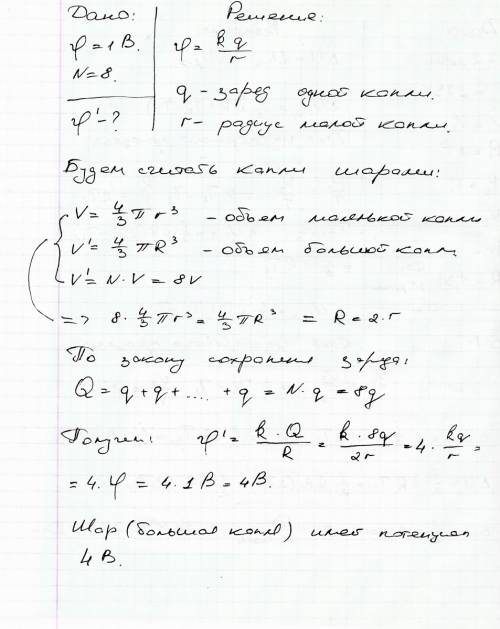 Дано: Решение:
φ = 1 В. φ = kq/r
N = 8.
q - заряд одной капли.
φ' - ? r - радиус малой капли.
Будем считать капли шарами:
V = 4/3 π r³ - объем маленькой капли
V' = 4/3 π R³ - объем большой капл
V' = N · V = 8V
=> 8 · 4/3 π r³ = 4/3 π R³ = R = 2 · r
По закону сохранения заряда:
Q = q + q + .... + q = N · q = 8q
Получим: φ' = k · Q/R = k · 8q/2r = 4 · kq/r =
= 4 · φ = 4 · 1 В = 4 В.
Шар (большая капля) имеет потенциал
4 В.